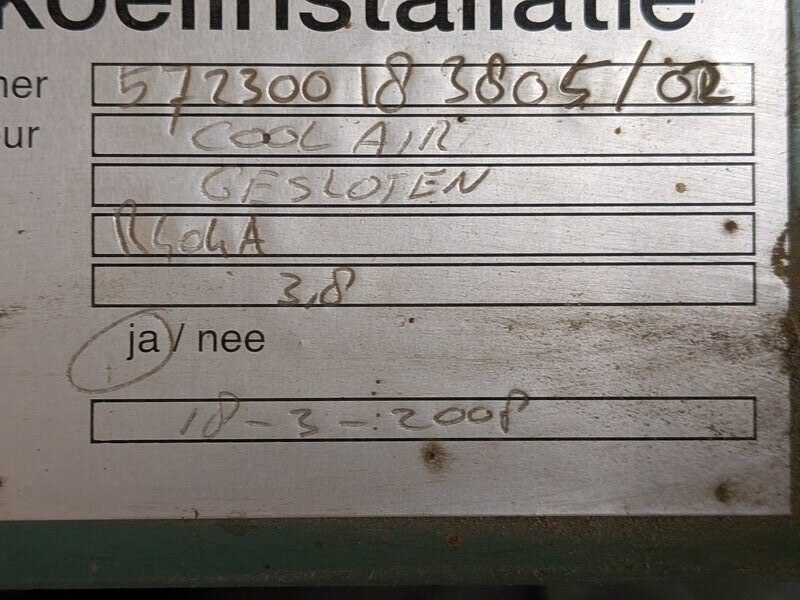 koelinstallatie
ner 572300 18 3805/02
our COOL AIR
GESLOTEN
R404A
3,8
ja / nee
18-3-2008